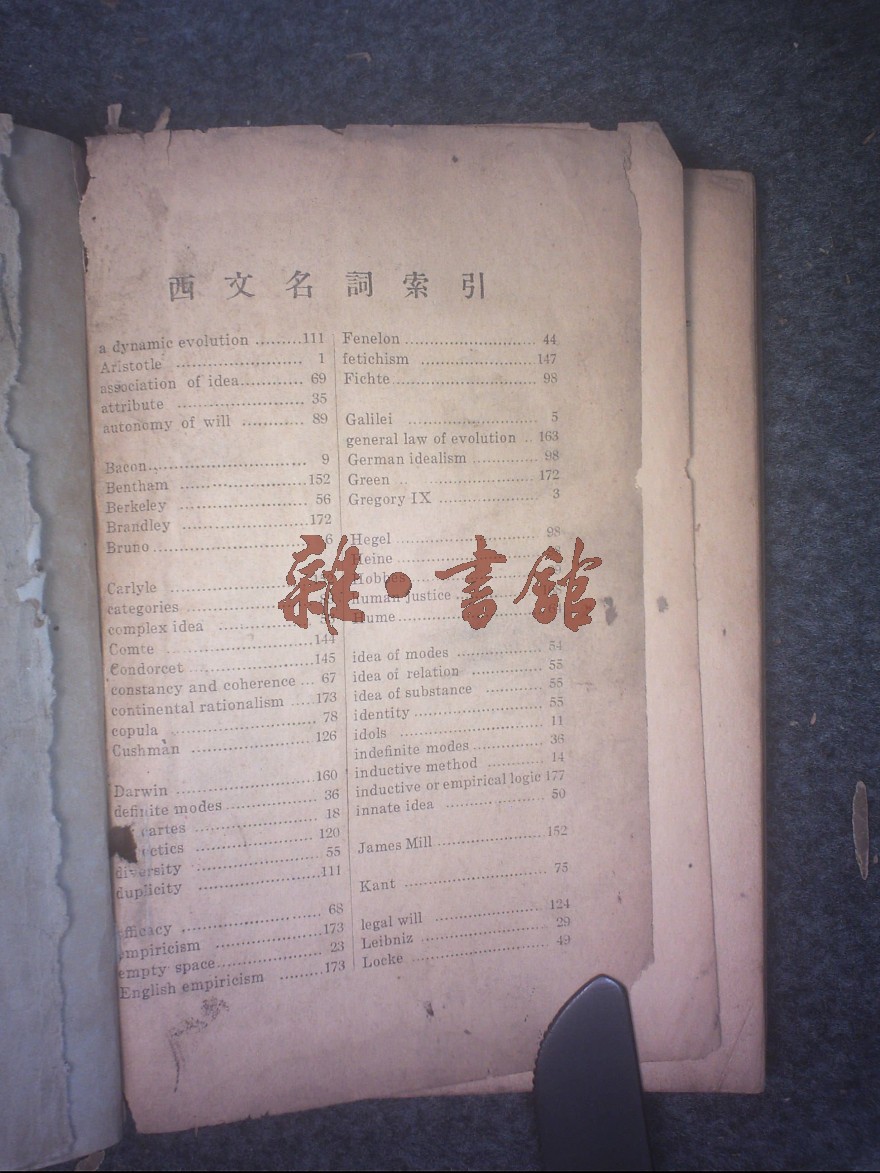 西文名詞索引
a dynamic evolution .........111
Aristotle ........................ 1
association of idea............ 69
attribute ........................ 35
autonomy of will ............ 89
Bacon............................... 9
Bentham ........................152
Berkeley ........................ 56
Brandley ........................172
Bruno.............................. 6
Carlyle
categories
complex idea
Comte ...........................144
Condorcet .....................145
constancy and coherence ... 67
continental rationalism .....173
copula ........................... 78
Cushman .....................126
Darwin ........................160
definite modes.................. 36
cartes ..................... 18
ectics .....................120
diversity ..................... 55
duplicity .....................111
efficacy ........................ 68
empiricism ..................173
empty space..................... 23
English empiricism .........173
Fenelon ........................... 44
fetichism ........................147
Fichte.............................. 98
Galilei ........................... 5
general law of evolution .. 163
German idealism ............ 98
Green .. .....................172
Gregory IX ..................... 3
Hegel ........................... 98
Heine
Hobbes
human justice
Hume
idea of modes .................. 54
idea of relation ............... 55
idea of substance ............ 55
identity........................... 55
idols ........................... 11
indefinite modes............... 36
inductive method ............ 14
inductive or empirical logic 177
innate idea ..................... 50
James Mill .....................152
Kant .............................. 75
legal will .....................124
Leibniz ........................ 29
Locke ........................... 49
雜·書館